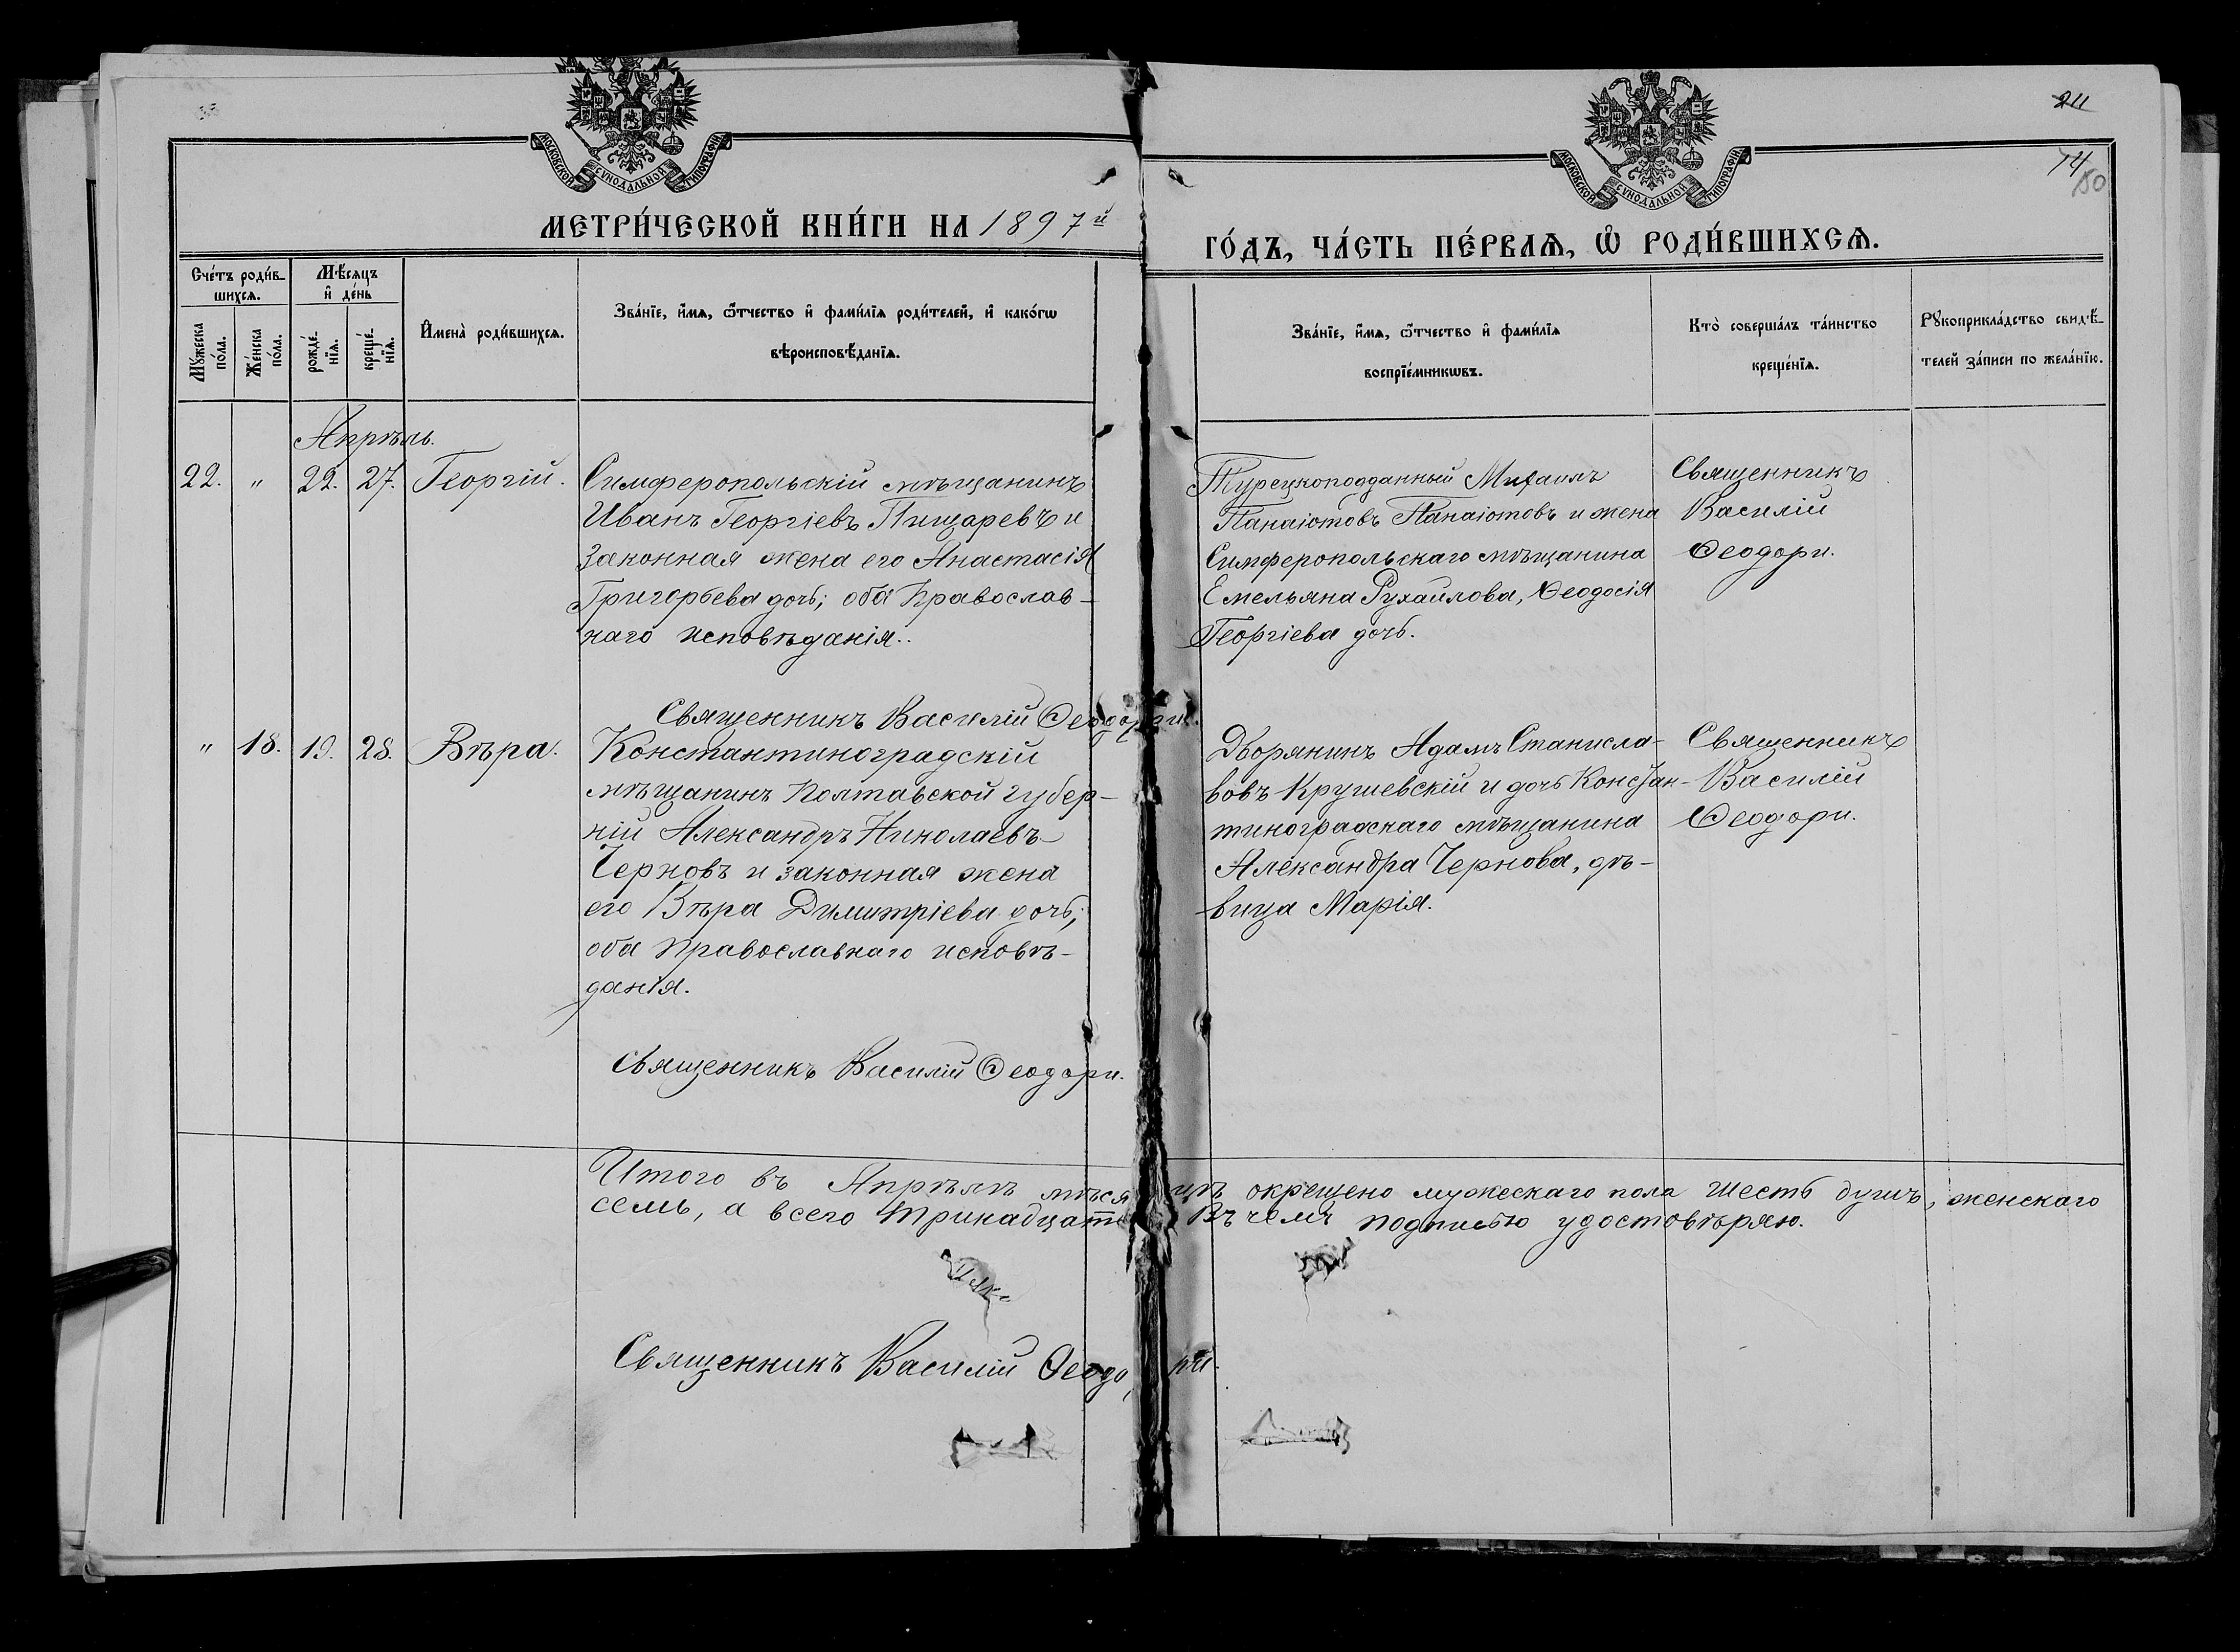 211
74
80
МОСКОВСКОЙ СѴНОДАЛЬНОЙ ТИПОГРАФІИ
МОСКОВСКОЙ СѴНОДАЛЬНОЙ ТИПОГРАФІИ
МЕТРИ́ЧЕСКОЙ КНИ́ГИ НА 1897й
ГО́ДЪ, ЧА́СТЬ ПЕ́РВАѦ, Ѡ҆ РОДИ́ВШИХСѦ.
Сче́тъ роди́в-
шихсѧ.
Мѣ́сѧцъ
и҆ де́нь
Мꙋ́жеска
по́ла.
Же́нска
по́ла.
рожде́-
нїѧ.
креще́-
нїѧ.
И҆мена̀ роди́вшихсѧ.
Зва́нїе, и҆́мѧ, ѻ҆́тчество и҆ фами́лїѧ роди́телей, и҆ како́гѡ
вѣроисповѣ́данїѧ.
Зва́нїе, и҆́мѧ, ѻ҆́тчество и҆ фами́лїѧ
воспрїе́мникѡвъ.
Кто̀ соверша́лъ та́инство
креще́нїѧ.
Рꙋкоприкла́дство свидѣ́-
телей за́писи по жела́нїю.
Апрѣль.
22. " 22. 27. Георгій.
Симферопольскій мѣщанинъ
Иванъ Георгіевъ Пищаревъ и
законная жена его Анастасія
Григорьева дочь; оба Православ-
наго исповѣданія.
Священникъ Василій Ѳеодори.
Турецкоподданный Михаилъ
Панаіотовъ Панаіотовъ и жена
Симферопольскаго мѣщанина
Емельяна Рухайлова, Ѳеодосія
Георгіева дочь.
Священникъ
Василій
Ѳеодори.
" 18. 19. 28. Вѣра.
Константиноградскій
мѣщанинъ Полтавской губер-
ніи Александръ Николаевъ
Черновъ и законная жена
его Вѣра Димитріева дочь;
оба Православнаго исповѣ-
данія.
Священникъ Василій Ѳеодори.
Дворянинъ Адамъ Станисла-
вовъ Крушевскій и дочь Констан-
тиноградскаго мѣщанина
Александра Чернова, дѣ-
вица Марія.
Священникъ
Василій
Ѳеодори.
Итого въ Апрѣлѣ мѣсяцѣ окрещено мужескаго пола шесть душъ, женскаго
семь, а всего тринадцать. Въ чемъ подписью удостовѣряю.
Священникъ Василій Ѳеодори.